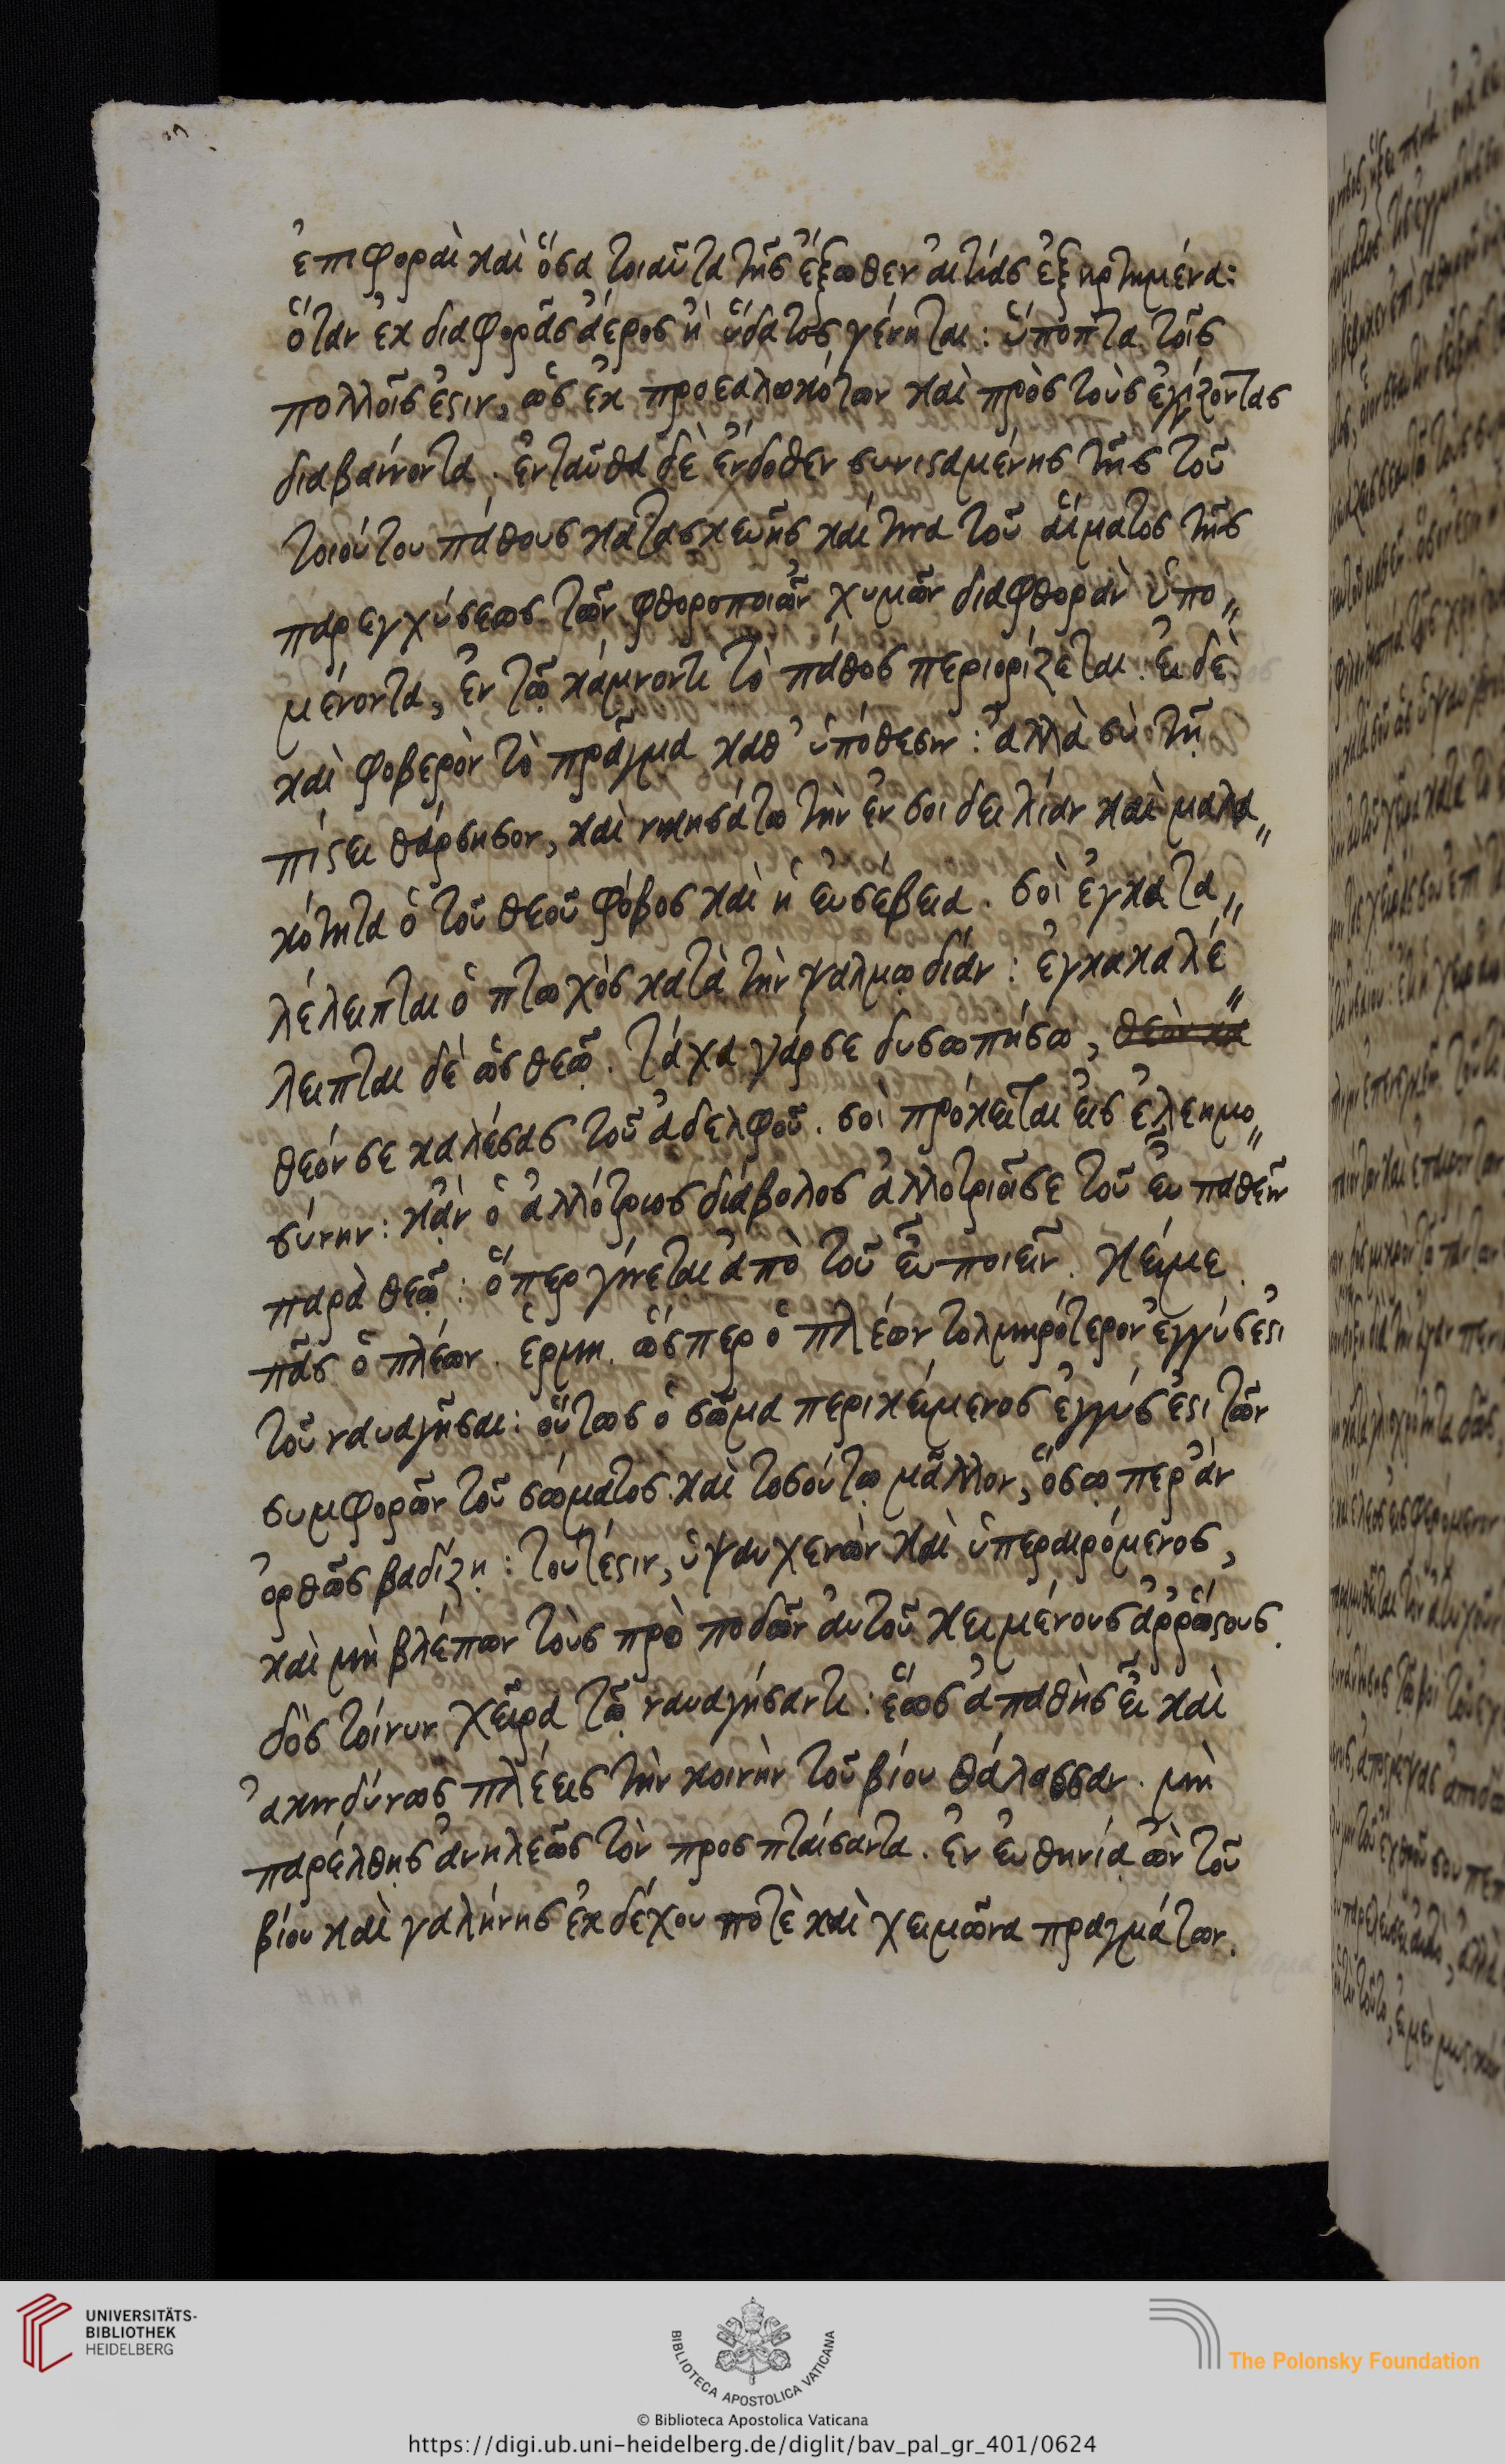 ἐπιφοραὶ καὶ ὅσα τοιαῦτα τῆς ἔξωθεν αἰτίας ἐξηρτημένα:
ὅταν ἐκ διαφορᾶς ἀέρος ἢ ὕδατος γένηται: ὕποπτα τοῖς
πολλοῖς ἐστιν, ὡς ἐκ προεαλωκότων καὶ πρὸς τοὺς ἐγγίζοντας
διαβαίνοντα. ἐνταῦθα δὲ ἔνδοθεν συνισταμένης τῆς τοῦ
τοιούτου πάθους κατασκευῆς καί τινα τοῦ αἵματος τῆς
παρεγχύσεως τῶν φθοροποιῶν χυμῶν διαφθορὰν ὑπο„
μένοντα, ἐν τῷ κάμνοντι τὸ πάθος περιορίζεται. εἰ δὲ
καὶ φοβερὸν τὸ πρᾶγμα καθ' ὑπόθεσιν: ἀλλὰ σὺ τῇ
πίστει θάρσησον, καὶ νικησάτω τὴν ἐν σοι δειλίαν καὶ μαλα„
κότητα ὁ τοῦ θεοῦ φόβος καὶ ἡ εὐσέβεια. σοὶ ἐγκατα„
λέλειπται ὁ πτωχὸς κατὰ τὴν ψαλμῳδίαν: ἐγκακαλέ„
λειπται δὲ ὡς θεῷ. τάχα γάρ σε δυσωπήσω, θεὸν κα
θεόν σε καλέσας τοῦ ἀδελφοῦ. σοὶ πρόκειται εἰς ἐλεημο„
σύνην: κἂν ὁ ἀλλότριος διάβολος ἀλλοτριᾷ σε τοῦ εὖ παθεῖν
παρὰ θεῷ: ὅπερ γίνεται ἀπὸ τοῦ εὖ ποιεῖν. Κείμε.
πᾶς ὁ πλέων. ἑρμη. ὥσπερ ὁ πλέων τολμηρότερον ἐγγύς ἐστι
τοῦ ναυαγῆσαι: οὕτως ὁ σῶμα περικείμενος ἐγγύς ἐστι τῶν
συμφορῶν τοῦ σώματος. καὶ τοσούτῳ μᾶλλον, ὅσῳ περ ἂν
ὀρθῶς βαδίζῃ: τουτέστιν, ὑψαυχενῶν καὶ ὑπεραιρόμενος,
καὶ μὴ βλέπων τοὺς πρὸ ποδῶν αὐτοῦ κειμένους ἀῤῥώστους.
δὸς τοίνυν χεῖρα τῷ ναυαγήσαντι: ἕως ἀπαθὴς εἶ καὶ
ἀκινδύνως πλέεις τὴν κοινὴν τοῦ βίου θάλασσαν. μὴ
παρέλθῃς ἀνηλεῶς τὸν προσπταίσαντα. ἐν εὐθηνίᾳ ὢν τοῦ
βίου καὶ γαλήνης ἐκδέχου ποτὲ καὶ χειμῶνα πραγμάτων.
UNIVERSITÄTS-
BIBLIOTHEK
HEIDELBERG
BIBLIOTECA APOSTOLICA VATICANA
The Polonsky Foundation
© Biblioteca Apostolica Vaticana
https://digi.ub.uni-heidelberg.de/diglit/bav_pal_gr_401/0624